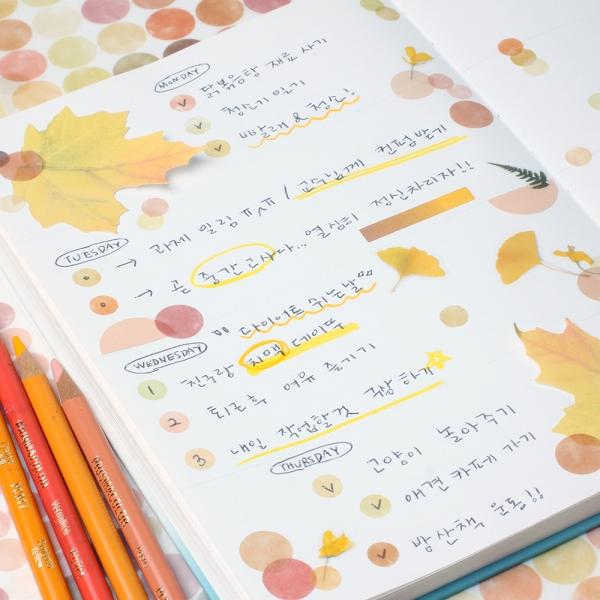 MONDAY
닭볶음탕 재료 사기
청소기 밀기
빨래 & 청소!
TUESDAY
→ 과제 밀림 ㅠㅅㅠ / 교수님께 컨펌받기
→ 곧 중간고사다... 열심히 정신차리자!!
다이어트 쉬는날
WEDNESDAY
1 친구랑 치맥 데이뚜
2 퇴근 후 여유 즐기기
3 내일 작업할것 구상하기
THURSDAY
고양이 놀아주기
애견 카페 가기
밤 산책 운동!!